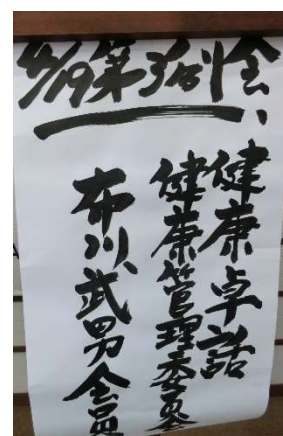 4/19第3例会、
健康卓話
健康管理委員会
布川武男会員